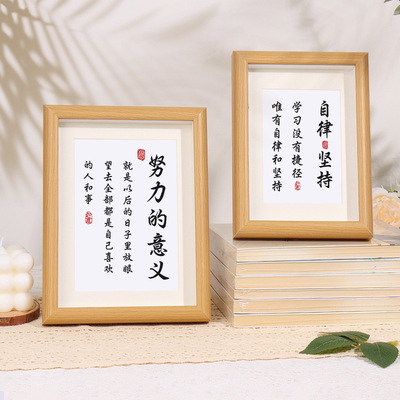 努力的意义
就是以后的日子里放眼
望去全部都是自己喜欢
的人和事
自律
坚持
学习没有捷径
唯有自律和坚持